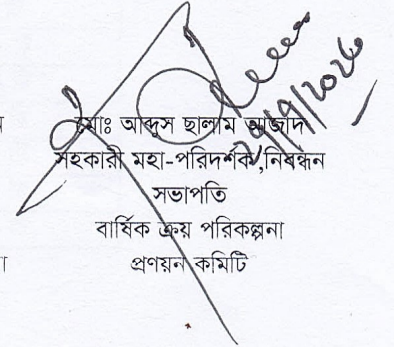 মোঃ আব্দুস ছালাম আজাদ
সহকারী মহা-পরিদর্শক,নিবন্ধন
সভাপতি
বার্ষিক ক্রয় পরিকল্পনা
প্রণয়ন কমিটি